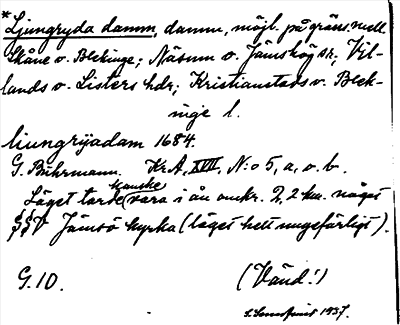 * Ljungryda damm, damm, möjl. på gräns. mell.
Skåne o. Blekinge; Näsum o. Jämshög sr; Vil-
lands o. Listers hdr; Kristianstads o. Blek-
inge l.
liungryadam 1684.
G. Buhrmann. Kr.A, XVII, N:o 5, a, o. b.
Läget torde kanske vara i ån omkr. 2,2 km. något
SSV Jämsö kyrka (läget helt ungefärligt).
G. 10. (Vänd!)
1937.